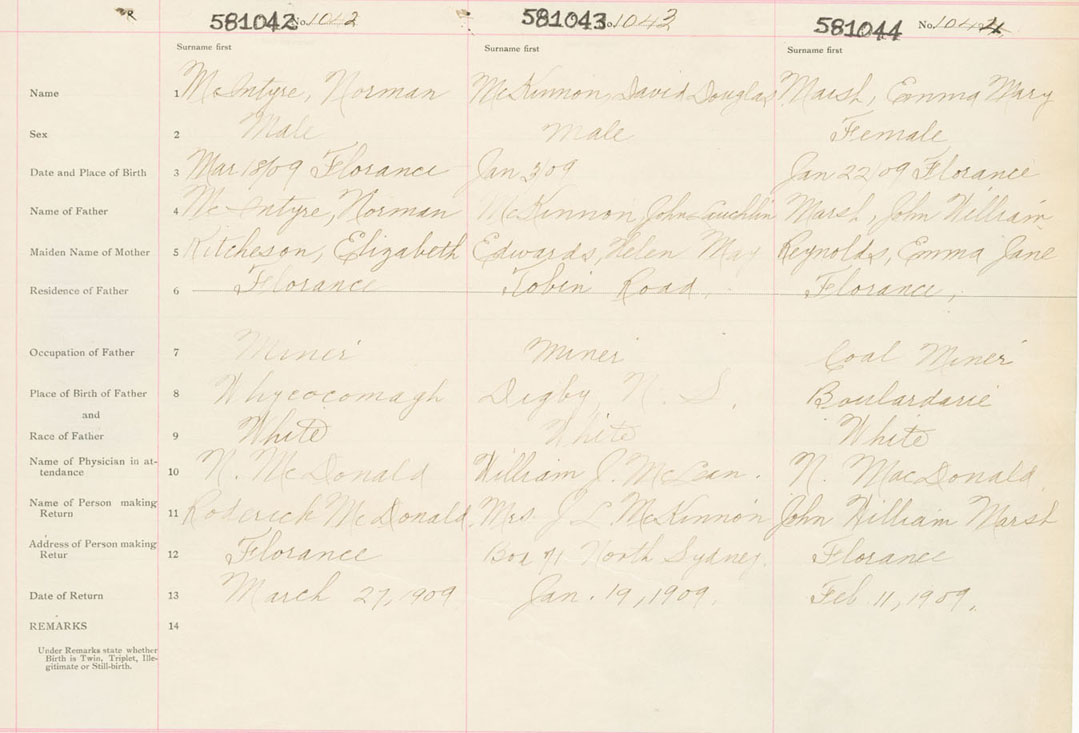 581042 No. 1042 581043 No. 1043 581044 No. 1044
Surname first Surname first Surname first
Name 1 McIntyre, Norman McKinnon, David Douglas Marsh, Emma Mary
Sex 2 Male Male Female
Date and Place of Birth 3 Mar 18/09 Florance Jan 3 09 Jan 22 09 Florance
Name of Father 4 McIntyre, Norman McKinnon John Lauchlin Marsh, John William
Maiden Name of Mother 5 Kitcheson, Elizabeth Edwards, Helen May Reynolds, Emma Jane
Residence of Father 6 Florance Tobin Road, Florance,
Occupation of Father 7 Miner Miner Coal Miner
Place of Birth of Father 8 Whycocomagh Digby N. S. Boulardarie
and
Race of Father 9 White White White
Name of Physician in at-
tendance 10 N. McDonald William J. McLean. N. MacDonald
Name of Person making
Return 11 Roderick McDonald Mrs. J L McKinnon John William Marsh
Address of Person making
Retur 12 Florance Box 71 North Sydney. Florance
Date of Return 13 March 27, 1909 Jan. 19, 1909. Feb 11, 1909.
REMARKS 14
Under Remarks state whether
Birth is Twin, Triplet, Ille-
gitimate or Still-birth.